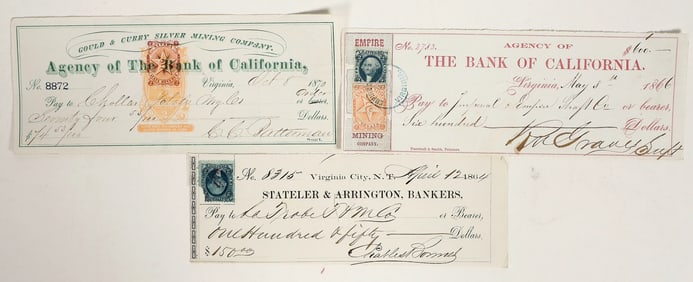 GOULD & CURRY SILVER MINING COMPANY.
Agency of The Bank of California,
No. 8872 Virginia, Oct 8 1870
Pay to Chollar Potosi Mg Co or order
Seventy four 53/100 Dollars.
$74 53/100
Supt.
EMPIRE
MINING
COMPANY.
No. 2783. AGENCY OF $600.—
THE BANK OF CALIFORNIA.
Virginia, May 8th 1866
Pay to Imperial & Empire Shaft Co or bearer,
Six hundred Dollars.
Supt
No. 8315 Virginia City, N.T. April 12 1864
STATELER & ARRINGTON, BANKERS.
Pay to La Trobe T & M Co or Bearer,
One Hundred & fifty Dollars,
$150.00 Charles Bonner